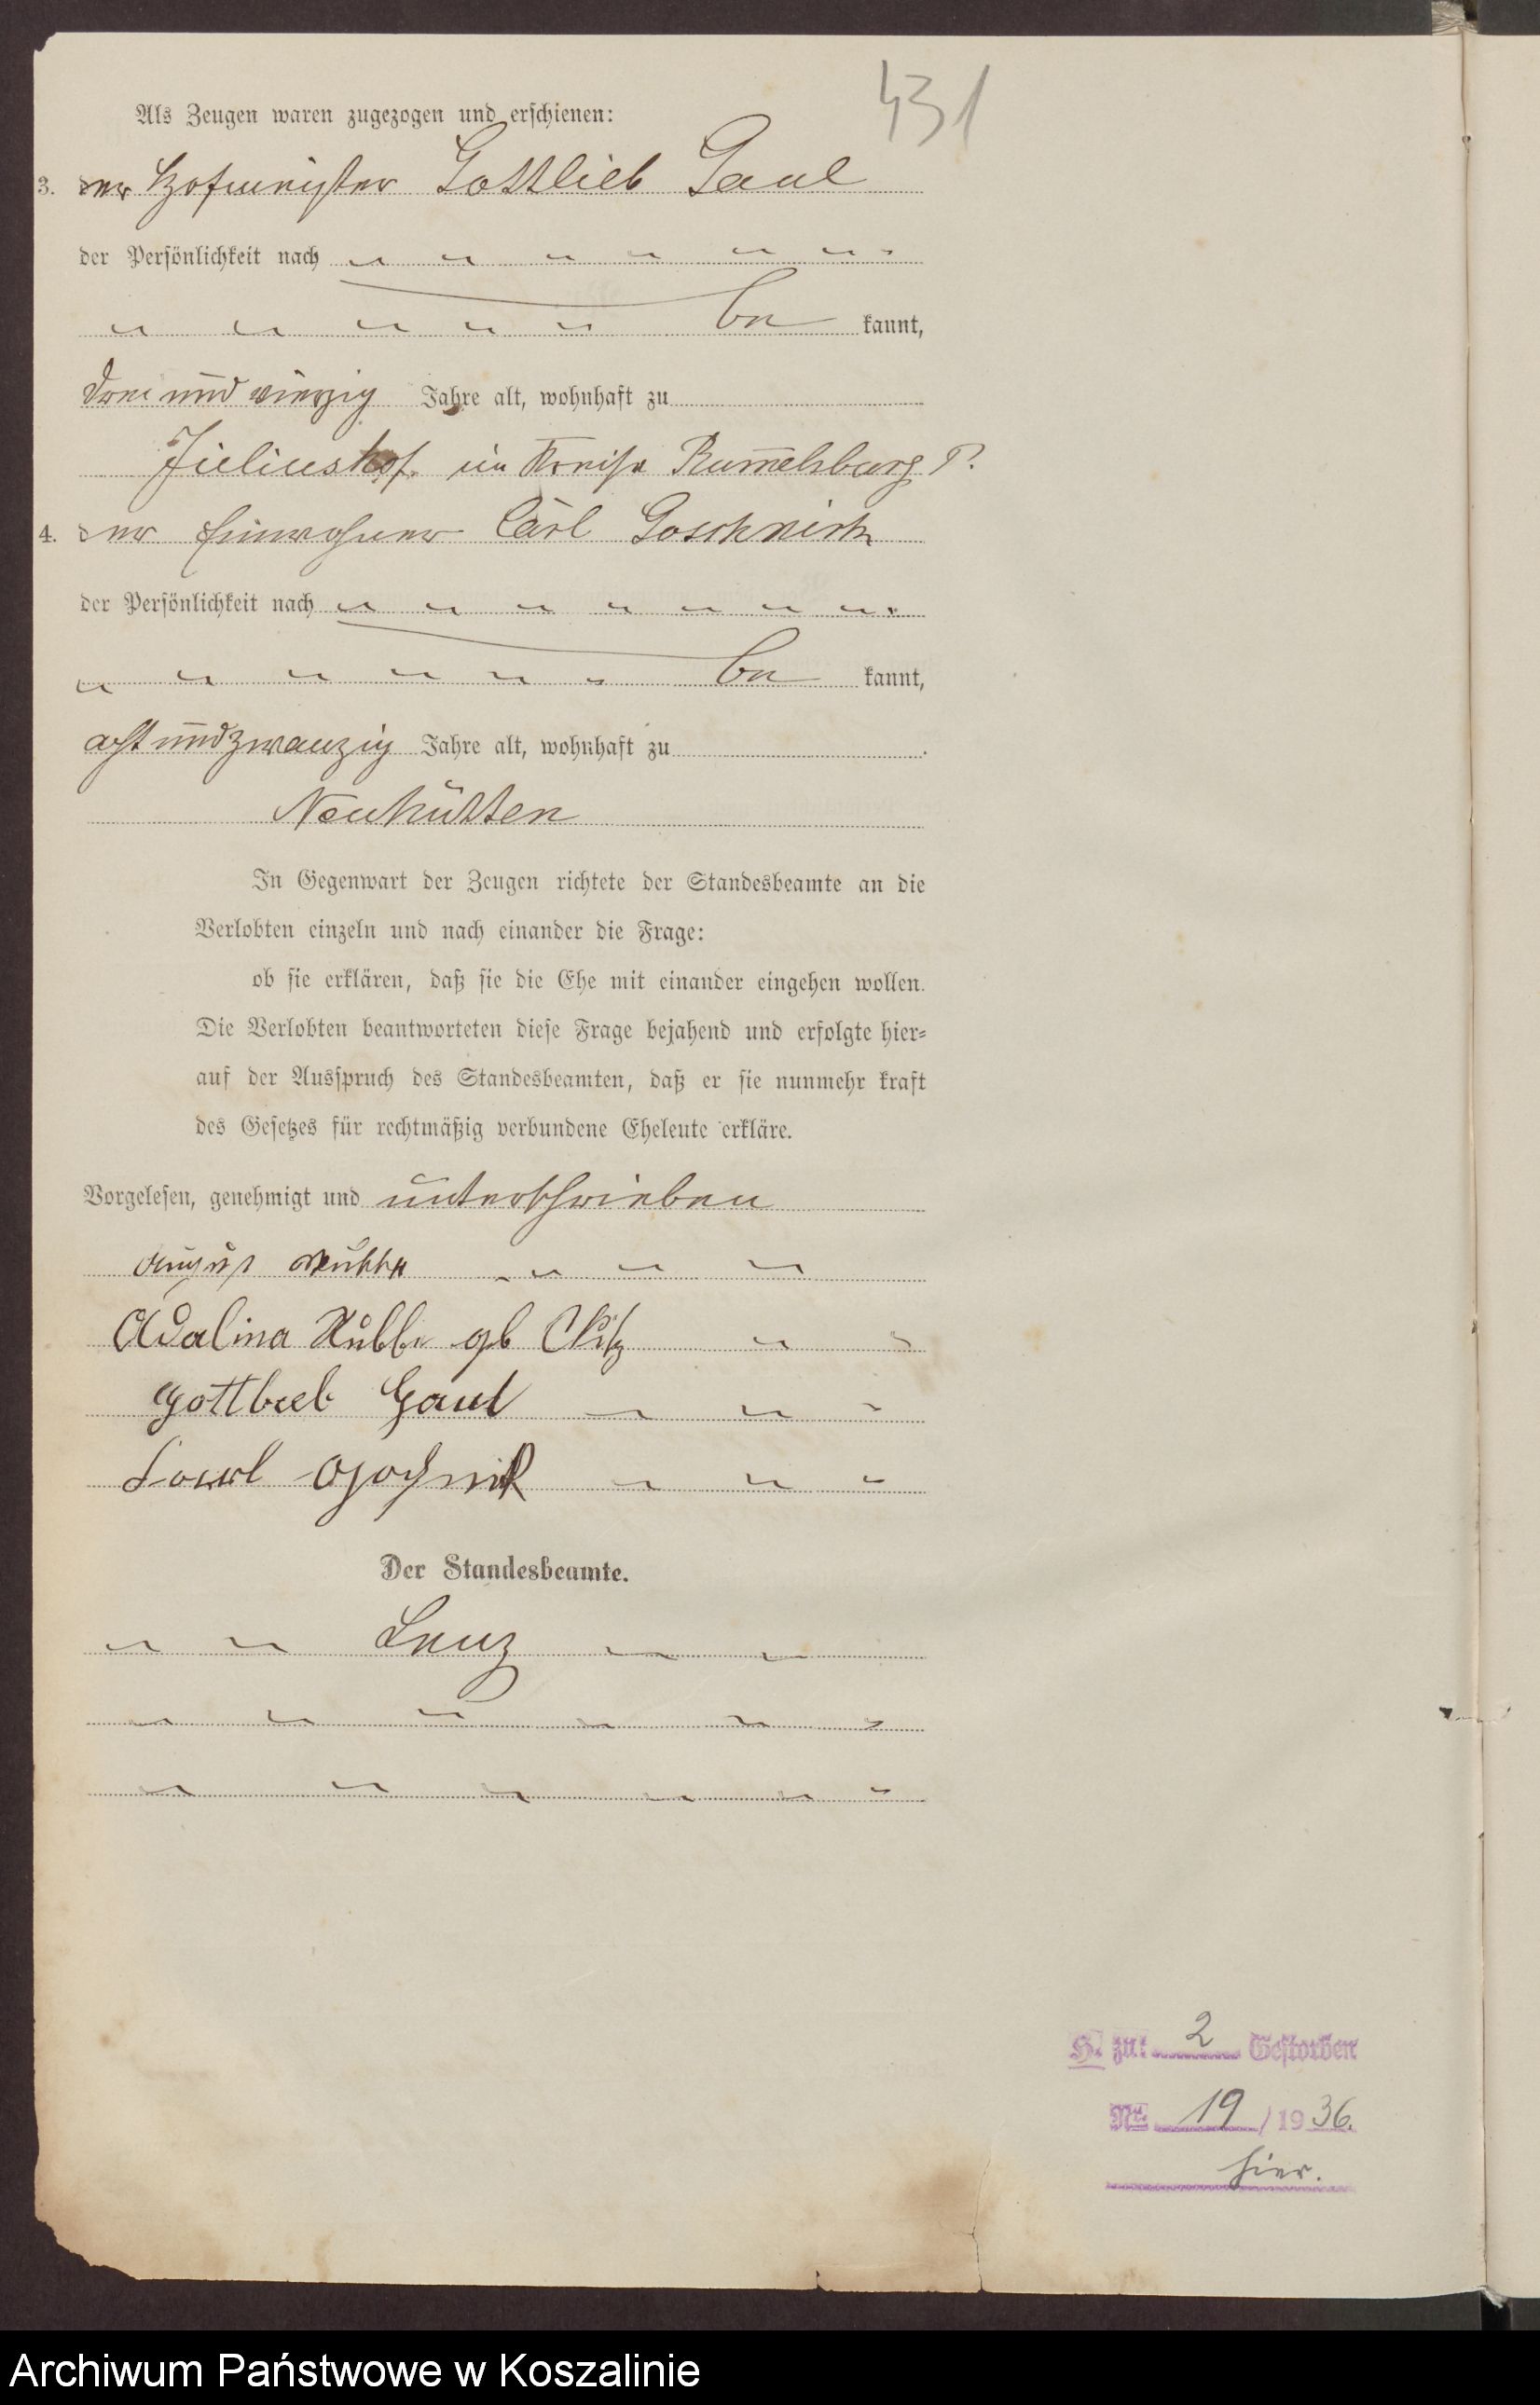 431
Als Zeugen waren zugezogen und erschienen:
3. der Hofmeister Gottlieb Gaul
der Persönlichkeit nach
be kannt,
drei und vierzig Jahre alt, wohnhaft zu
Juliushof im Kreise Rummelsburg P.
4. der Einwohner Carl Goschnick
der Persönlichkeit nach
be kannt,
acht und zwanzig Jahre alt, wohnhaft zu
Neuhütten
In Gegenwart der Zeugen richtete der Standesbeamte an die
Verlobten einzeln und nach einander die Frage:
ob sie erklären, daß sie die Ehe mit einander eingehen wollen.
Die Verlobten beantworteten diese Frage bejahend und erfolgte hier=
auf der Ausspruch des Standesbeamten, daß er sie nunmehr kraft
des Gesetzes für rechtmäßig verbundene Eheleute erkläre.
Vorgelesen, genehmigt und unterschrieben
August
Adalina gb
Gottlieb Gaul
Carl Goschnick
Der Standesbeamte.
Lenz
H. zu: 2 Gestorben
Nr. 19 / 1936.
hier.
Archiwum Państwowe w Koszalinie